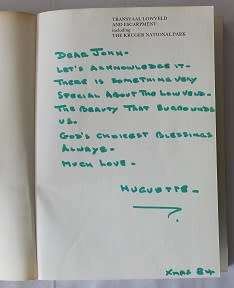 TRANSVAAL LOWVELD
AND ESCARPMENT
including
THE KRUGER NATIONAL PARK
DEAR JOHN-
LET'S ACKNOWLEDGE IT-
THERE IS SOMETHING VERY
SPECIAL ABOUT THE LOWVELD-
THE BEAUTY THAT SURROUNDS
US.
GOD'S CHOICEST BLESSINGS
ALWAYS-
MUCH LOVE-
HUGUETTE-
XMAS 84.